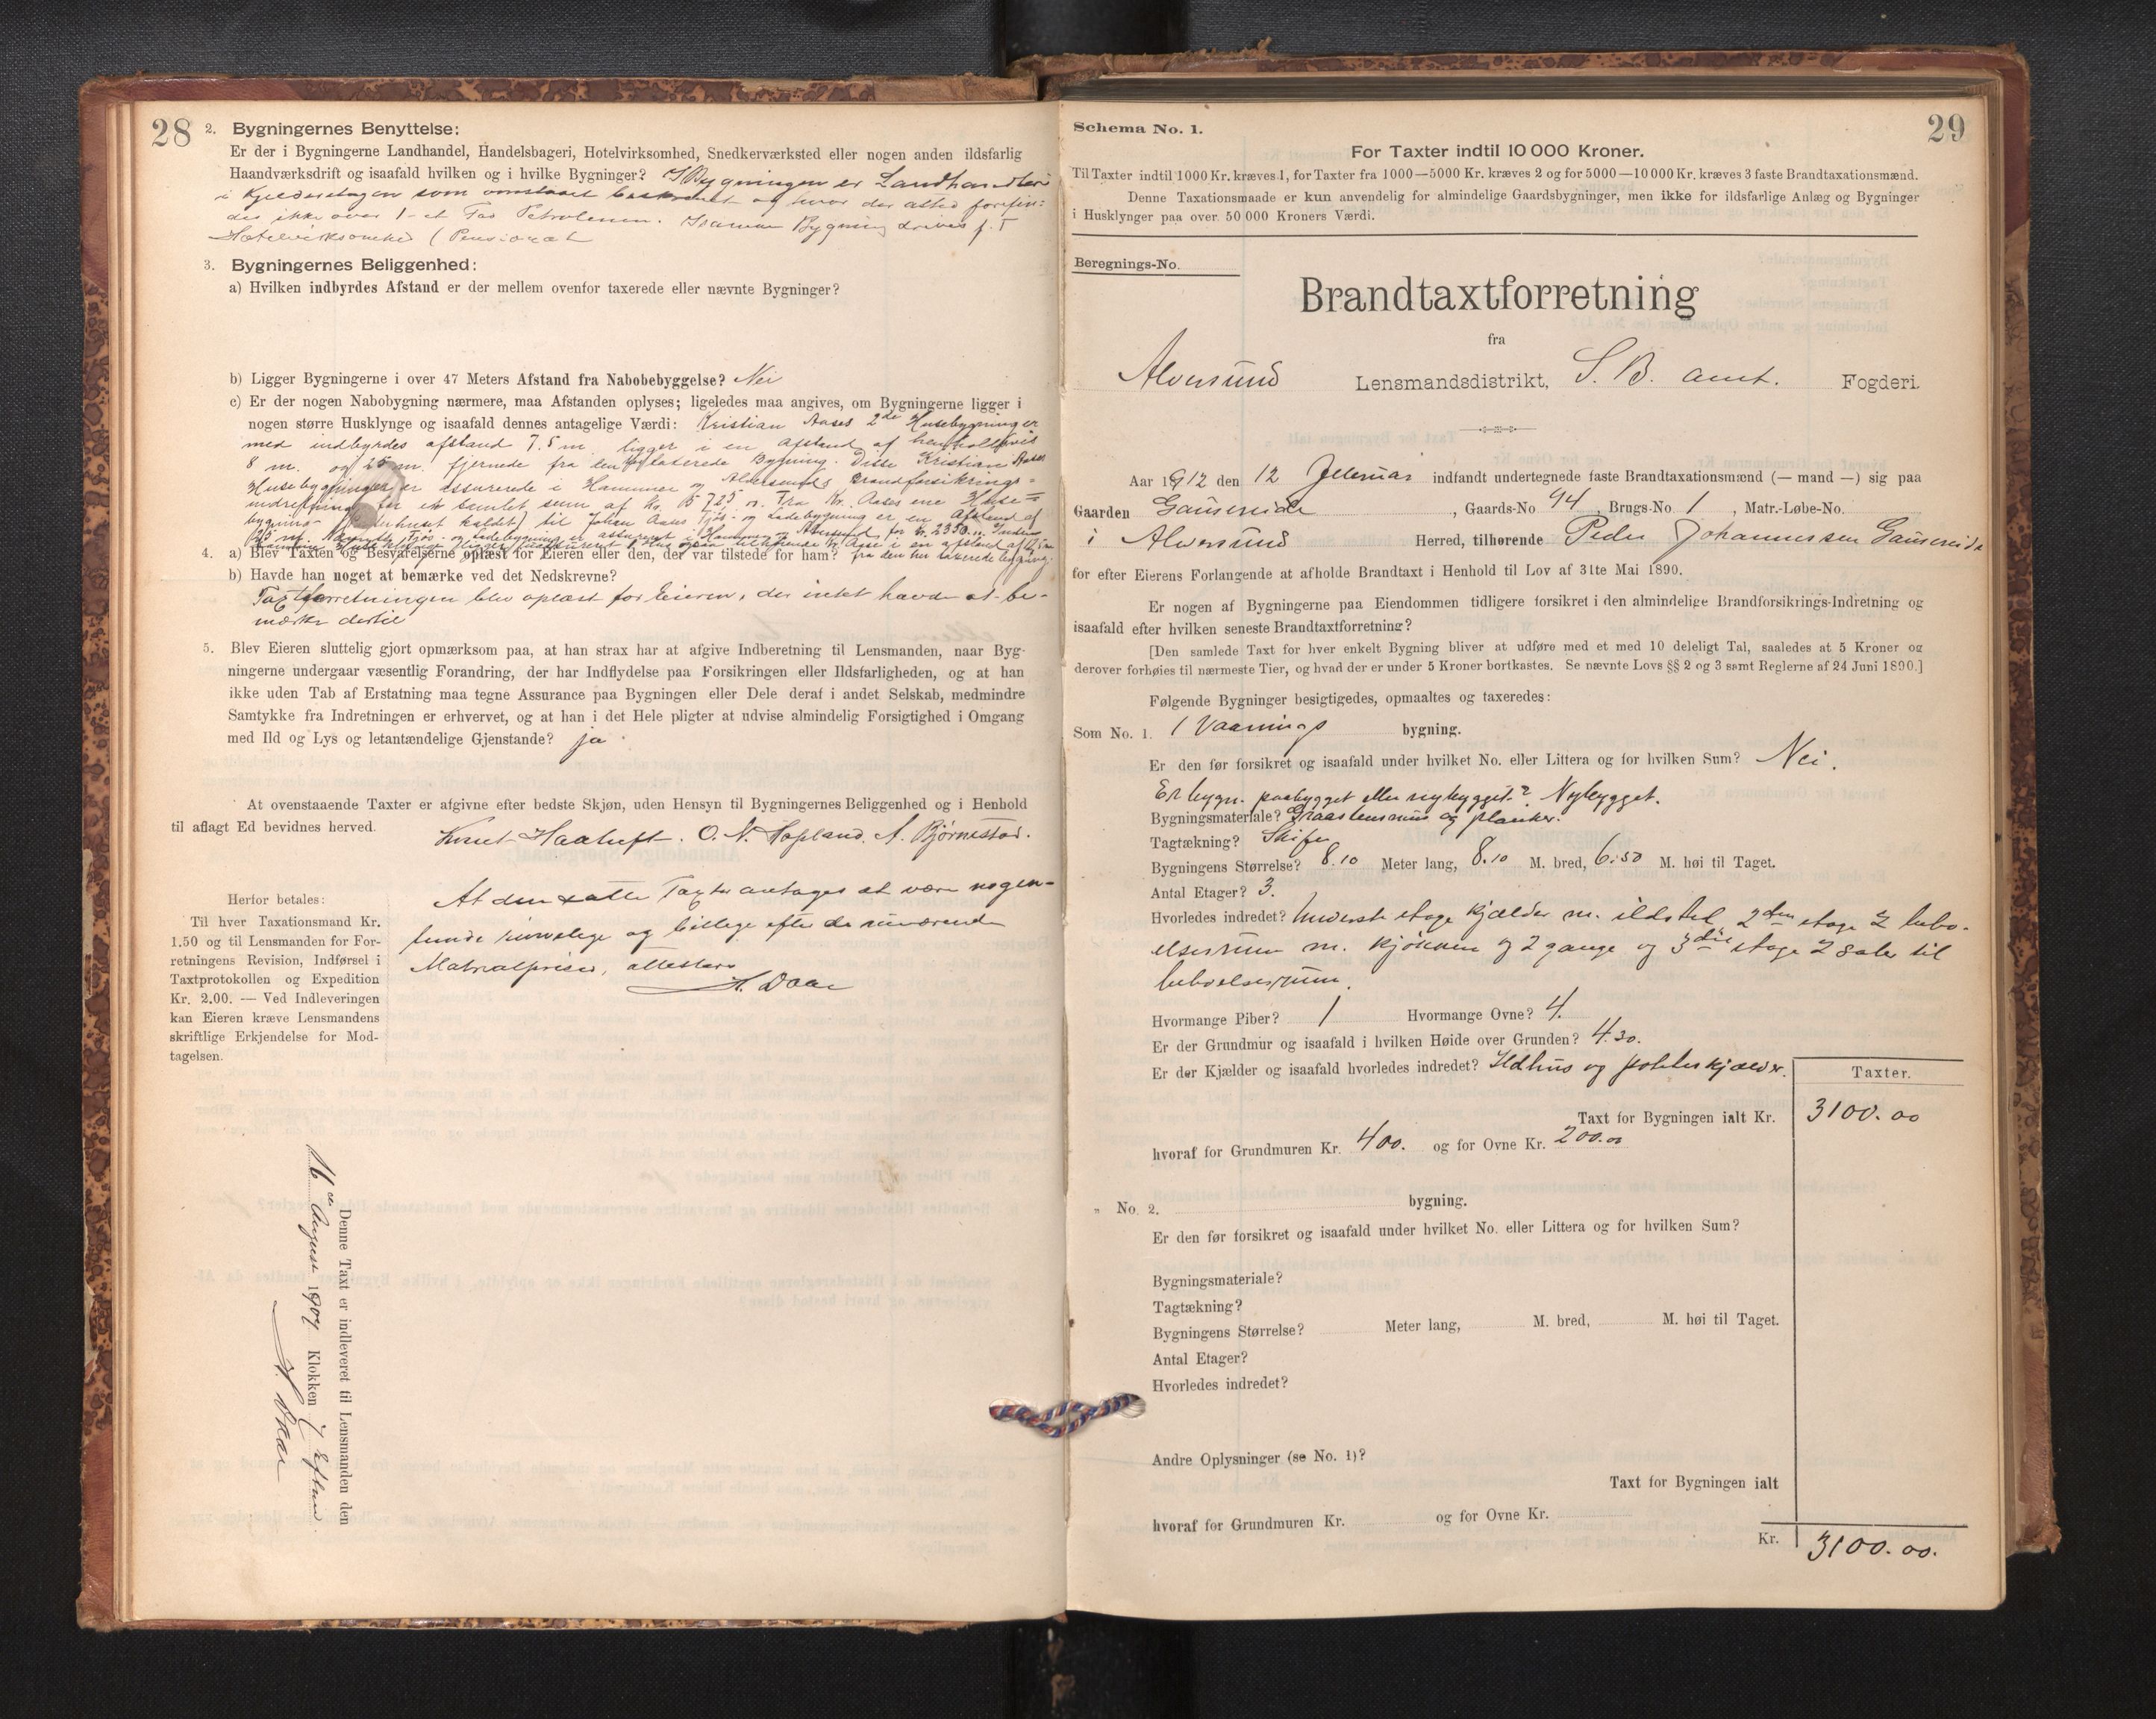 28
2. Bygningernes Benyttelse:
Er der i Bygningerne Landhandel, Handelsbageri, Hotelvirksomhed, Snedkerværksted eller nogen anden ildsfarlig
Haandværksdrift og isaafald hvilken og i hvilke Bygninger? I Bygningen er Landhandleri
i Kjelderetagen som ovenstaaet beskrevet og hvor der altid forefin-
des ikke over 1 et Fad Petroleum. Isamme Bygning drives f. T
Hotelvirksomhed (Pensionat
3. Bygningernes Beliggenhed:
a) Hvilken indbyrdes Afstand er der mellem ovenfor taxerede eller nævnte Bygninger?
b) Ligger Bygningerne i over 47 Meters Afstand fra Nabobebyggelse? Nei
c) Er der nogen Nabobygning nærmere, maa Afstanden oplyses; ligeledes maa angives, om Bygningerne ligger i
nogen større Husklynge og isaafald dennes antagelige Værdi: Kristian Aases 2de Husebygninger
med indbyrdes afstand 7.5 m ligger i en afstand af henholdsvis
8 m. og 25 m. fjernede fra den her taxerede Bygning. Disse Kristian Aases
Husebygninger er assurerede i Hammer og Alversunds Brandforsikrings-
indretning for en samlet sum af kr. 5725 . Fra Kr. Aases ene Huse-
bygning kaldet) til Johan Aases Fjøs- og Ladebygning er en Afstand af
25 m. Nævnte Fjøs og Ladebygning er assureret i Hammer & Alversund for kr. 2350.
fra den her taxerede bygning.
4. a) Blev Taxten og Beskrivelserne oplæst for Eieren eller den, der var tilstede for ham?
b) Havde han noget at bemærke ved det Nedskrevne?
Taxtforretningen blev oplæst for Eieren, der intet havde at be-
mærke dertil
5. Blev Eieren sluttelig gjort opmærksom paa, at han strax har at afgive Indberetning til Lensmanden, naar Byg-
ningerne undergaar væsentlig Forandring, der har Indflydelse paa Forsikringen eller Ildsfarligheden, og at han
ikke uden Tab af Erstatning maa tegne Assurance paa Bygningen eller Dele deraf i andet Selskab, medmindre
Samtykke fra Indretningen er erhvervet, og at han i det Hele pligter at udvise almindelig Forsigtighed i Omgang
med Ild og Lys og letantændelige Gjenstande? ja
At ovenstaaende Taxter er afgivne efter bedste Skjøn, uden Hensyn til Bygningernes Beliggenhed og i Henhold
til aflagt Ed bevidnes herved.
Knut Haatuft. O. N. Hopland. A. Bjørnestad.
Herfor betales:
Til hver Taxationsmand Kr.
1.50 og til Lensmanden for For-
retningens Revision, Indførsel i
Taxtprotokollen og Expedition
Kr. 2.00. — Ved Indleveringen
kan Eieren kræve Lensmandens
skriftlige Erkjendelse for Mod-
tagelsen.
At den satte Taxt antages at være nogen-
lunde rimelige og billige efter de nuværende
Matrialpriser, attesteres
A. Daae
Denne Taxt er indleveret til Lensmanden den
16de August 1909 Klokken 7 Efterm.
A. Daae
29
Schema No. 1.
For Taxter indtil 10 000 Kroner.
Til Taxter indtil 1000 Kr. kræves 1, for Taxter fra 1000—5000 Kr. kræves 2 og for 5000—10 000 Kr. kræves 3 faste Brandtaxationsmænd.
Denne Taxationsmaade er kun anvendelig for almindelige Gaardsbygninger, men ikke for ildsfarlige Anlæg og Bygninger
i Husklynger paa over 50 000 Kroners Værdi.
Beregnings-No.
Brandtaxtforretning
fra
Alversund Lensmandsdistrikt, S. B. amt. Fogderi.
Aar 1912 den 12 Februar indfandt undertegnede faste Brandtaxationsmænd (— mand —) sig paa
Gaarden Gausereide, Gaards-No. 44, Brugs-No. 1, Matr.-Løbe-No.
i Alversund Herred, tilhørende Peder Johannessen Gausereide
for efter Eierens Forlangende at afholde Brandtaxt i Henhold til Lov af 31te Mai 1890.
Er nogen af Bygningerne paa Eiendommen tidligere forsikret i den almindelige Brandforsikrings-Indretning og
isaafald efter hvilken seneste Brandtaxtforretning?
[Den samlede Taxt for hver enkelt Bygning bliver at udføre med et med 10 deleligt Tal, saaledes at 5 Kroner og
derover forhøies til nærmeste Tier, og hvad der er under 5 Kroner bortkastes. Se nævnte Lovs §§ 2 og 3 samt Reglerne af 24 Juni 1890.]
Følgende Bygninger besigtigedes, opmaaltes og taxeredes:
Som No. 1. 1 Vaanings bygning.
Er den før forsikret og isaafald under hvilket No. eller Littera og for hvilken Sum? Nei.
Er bygn. paabygget eller nybygget? Nybygget.
Bygningsmateriale? Graastensmur og planker.
Tagtækning? Skifer
Bygningens Størrelse? 8.10 Meter lang, 8.10 M. bred, 6.50 M. høi til Taget.
Antal Etager? 3.
Hvorledes indredet? Underste etage kjælder m. ildsted 2den etage 2 bebo-
elsesrum m. kjøkken og 2 gange og 3die etage 2 saler til
beboelsesrum.
Hvormange Piber? 1 Hvormange Ovne? 4.
Er der Grundmur og isaafald i hvilken Høide over Grunden? 4.30.
Er der Kjælder og isaafald hvorledes indredet? Ildhus og potteskjælder.
Taxter.
Taxt for Bygningen ialt Kr. 3100.00
hvoraf for Grundmuren Kr. 400. og for Ovne Kr. 200.00
„ No. 2. bygning.
Er den før forsikret og isaafald under hvilket No. eller Littera og for hvilken Sum?
Bygningsmateriale?
Tagtækning?
Bygningens Størrelse? Meter lang, M. bred, M. høi til Taget.
Antal Etager?
Hvorledes indredet?
Andre Oplysninger (se No. 1)?
Taxt for Bygningen ialt
hvoraf for Grundmuren Kr. og for Ovne Kr.
Kr. 3100.00.